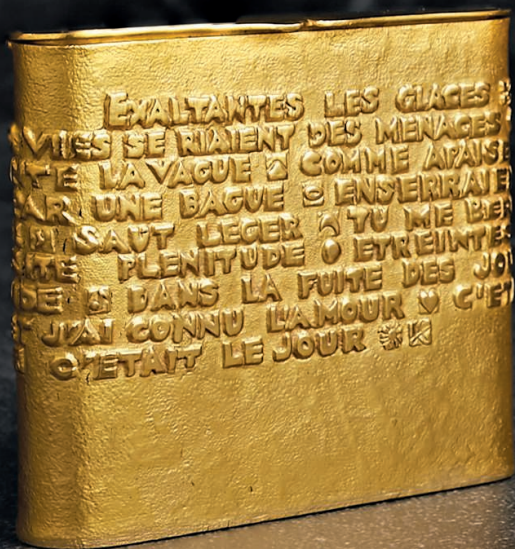 EXALTANTES LES GLACES
VIIES SE RIAIENT DES MENACES
TE LA VAGUE COMME APAISE
AR UNE BAGUE ENSERRAIE
SAUT LEGER TU ME BER
ITE PLENITUDE ETREINTES
DE DANS LA FUITE DES JO
T J'AI CONNU L'AMOUR C'E
C'ETAIT LE JOUR